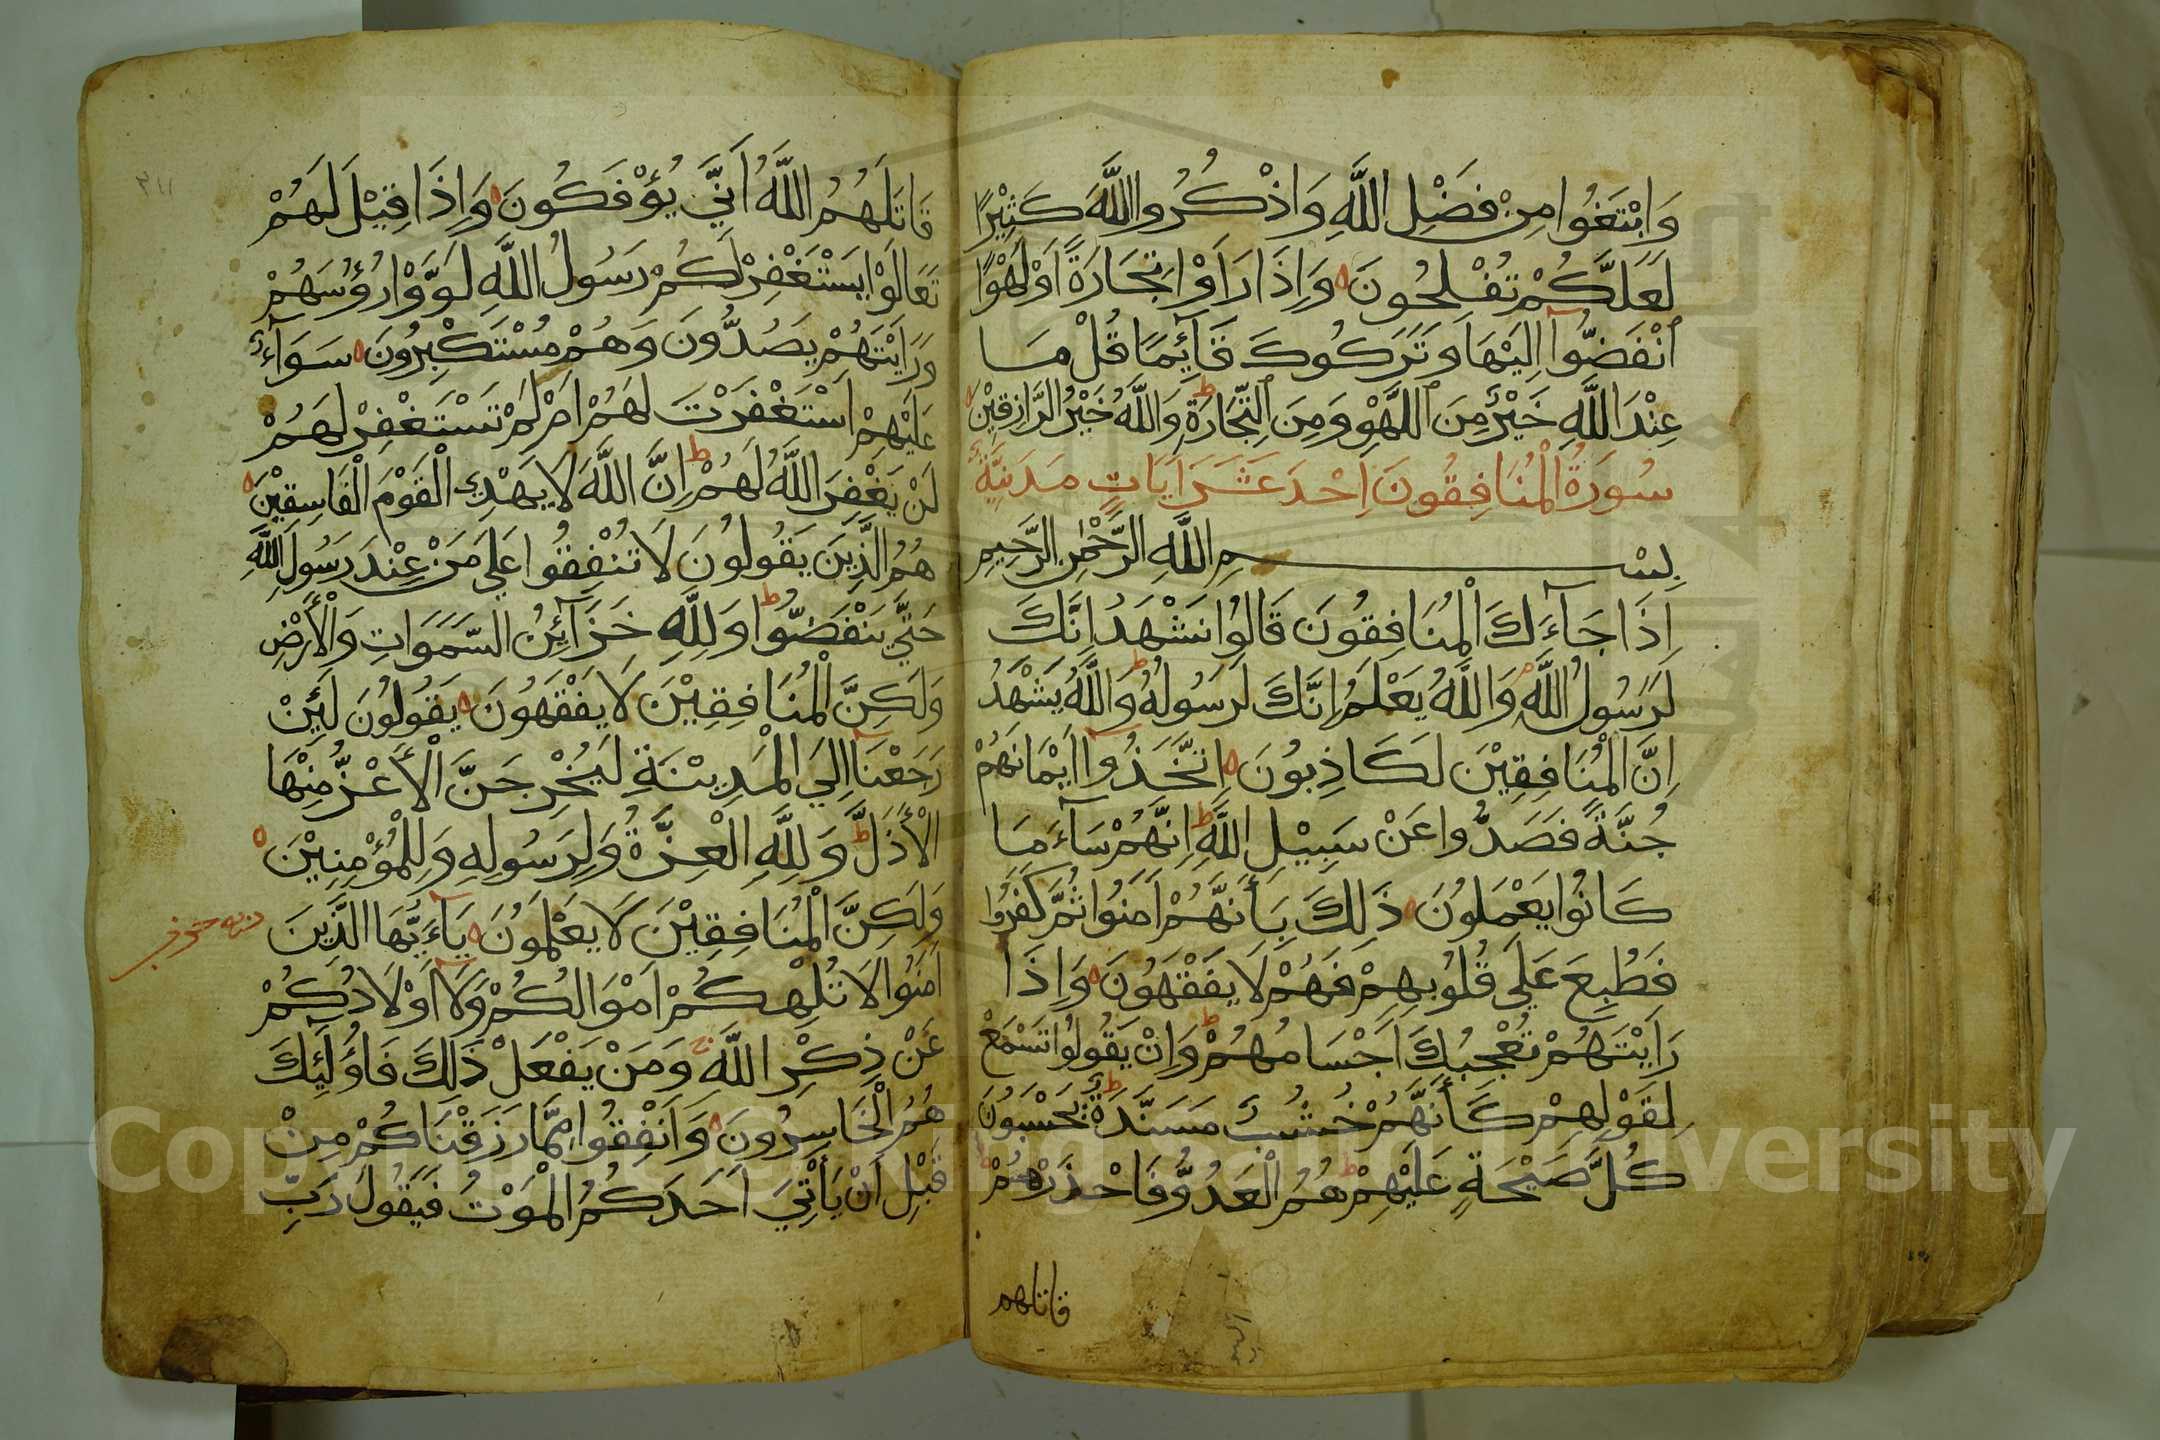 وَابْتَغُوا مِنْ فَضْلِ اللَّهِ وَاذْكُرُوا اللَّهَ كَثِيْرًا
لَعَلَّكُمْ تُفْلِحُونَ ه وَاِذَا رَاَوْا تِجَارَةً اَوْ لَهْوًا
انْفَضُّوا اِلَيْهَا وَتَرَكُوكَ قَائِمًا قُلْ مَا
عِنْدَ اللَّهِ خَيْرٌ مِنَ اللَّهْوِ وَمِنَ التِّجَارَةِ ط وَاللَّهُ خَيْرُ الرَّازِقِيْنَ ه
سُورَةُ الْمُنَافِقُونَ اِحْدَ عَشَرَ اٰيَاتٍ مَدَنِيَّةٌ
بِسْمِ اللَّهِ الرَّحْمٰنِ الرَّحِيمِ
اِذَا جَآءَكَ الْمُنَافِقُونَ قَالُوا نَشْهَدُ اِنَّكَ
لَرَسُولُ اللَّهِ م وَاللَّهُ يَعْلَمُ اِنَّكَ لَرَسُولُهُ ط وَاللَّهُ يَشْهَدُ
اِنَّ الْمُنَافِقِيْنَ لَكَاذِبُونَ ه اِتَّخَذُوا اَيْمَانَهُمْ
جُنَّةً فَصَدُّوا عَنْ سَبِيْلِ اللَّهِ ط اِنَّهُمْ سَآءَ مَا
كَانُوا يَعْمَلُونَ ه ذَلِكَ بِأَنَّهُمْ اٰمَنُوا ثُمَّ كَفَرُوا
فَطُبِعَ عَلَي قُلُوبِهِمْ فَهُمْ لَا يَفْقَهُونَ ه وَاِذَا
رَاَيْتَهُمْ تُعْجِبُكَ اَجْسَامُهُمْ ط وَاِنْ يَقُولُوا تَسْمَعْ
لِقَوْلِهِمْ كَأَنَّهُمْ خُشُبٌ مُسَنَّدَةٌ ط يَحْسَبُونَ
كُلَّ صَيْحَةٍ عَلَيْهِمْ ط هُمُ الْعَدُوُّ فَاحْذَرْهُمْ ط
قاتلهم
قَاتَلَهُمُ اللَّهُ اَنَّي يُؤْفَكُونَ ه وَاِذَا قِيْلَ لَهُمْ
تَعَالَوْا يَسْتَغْفِرْ لَكُمْ رَسُولُ اللَّهِ لَوَّوْا رُؤُسَهُمْ
وَرَاَيْتَهُمْ يَصُدُّونَ وَهُمْ مُسْتَكْبِرُونَ ه سَوَآءٌ
عَلَيْهِمْ اَسْتَغْفَرْتَ لَهُمْ اَمْ لَمْ تَسْتَغْفِرْ لَهُمْ
لَنْ يَغْفِرَ اللَّهُ لَهُمْ ط اِنَّ اللَّهَ لَا يَهْدِي الْقَوْمَ الْفَاسِقِيْنَ ه
هُمُ الَّذِيْنَ يَقُولُونَ لَا تُنْفِقُوا عَلَي مَنْ عِنْدَ رَسُولِ اللَّهِ
حَتَّي يَنْفَضُّوا ط وَلِلَّهِ خَزَآئِنُ السَّمَوَاتِ وَالْأَرْضِ
وَلَكِنَّ الْمُنَافِقِيْنَ لَا يَفْقَهُونَ ه يَقُولُونَ لَئِنْ
رَجَعْنَا اِلَي الْمَدِيْنَةِ لَيُخْرِجَنَّ الْأَعَزُّ مِنْهَا
الْأَذَلَّ ط وَلِلَّهِ الْعِزَّةُ وَلِرَسُولِهِ وَلِلْمُؤْمِنِيْنَ ه
وَلَكِنَّ الْمُنَافِقِيْنَ لَا يَعْلَمُونَ ه يَآءَيُّهَا الَّذِيْنَ
اٰمَنُوا لَا تُلْهِكُمْ اَمْوَالُكُمْ وَلَا اَوْلَادُكُمْ
عَنْ ذِكْرِ اللَّهِ ج وَمَنْ يَفْعَلْ ذَلِكَ فَاُولَئِكَ
هُمُ الْخَاسِرُونَ ه وَاَنْفِقُوا مِمَّا رَزَقْنَاكُمْ مِنْ
قَبْلِ اَنْ يَأْتِيَ اَحَدَكُمُ الْمَوْتُ فَيَقُولَ رَبِّ